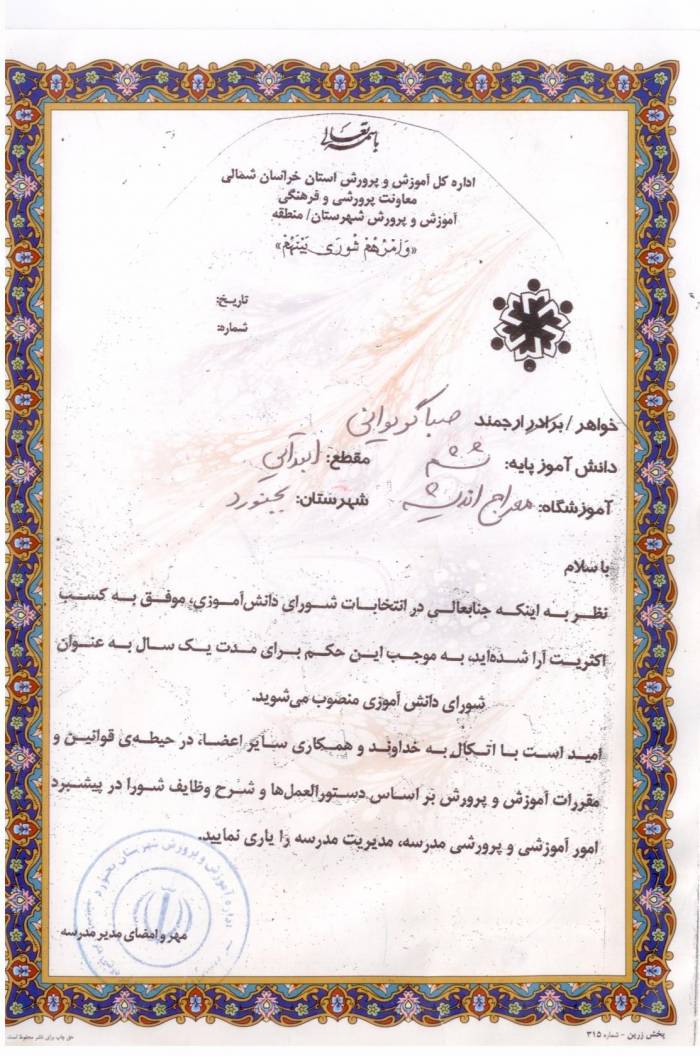 باسمه تعالی
اداره کل آموزش و پرورش استان خراسان شمالی
معاونت پرورشی و فرهنگی
آموزش و پرورش شهرستان/ منطقه
«وَ اَمْرُهُمْ شُوریٰ بَیْنَهُمْ»
تاریخ:
شماره:
خواهر / برادر ارجمند صبا گویوانی
دانش آموز پایه: ششم مقطع: ابتدائی
آموزشگاه: معراج اندیشه شهرستان: بجنورد
با سلام
نظر به اینکه جنابعالی در انتخابات شورای دانش‌آموزی، موفق به کسب
اکثریت آرا شده‌اید، به موجب این حکم برای مدت یک سال به عنوان
شورای دانش آموزی منصوب می‌شوید.
امید است با اتکال به خداوند و همکاری سایر اعضاء در حیطه‌ی قوانین و
مقررات آموزش و پرورش بر اساس دستورالعمل‌ها و شرح وظایف شورا در پیشبرد
امور آموزشی و پرورشی مدرسه، مدیریت مدرسه را یاری نمایید.
اداره آموزش و پرورش شهرستان بجنورد
مهر و امضای مدیر مدرسه
پخش زرین - شماره ۳۱۵
حق چاپ برای ناشر محفوظ است